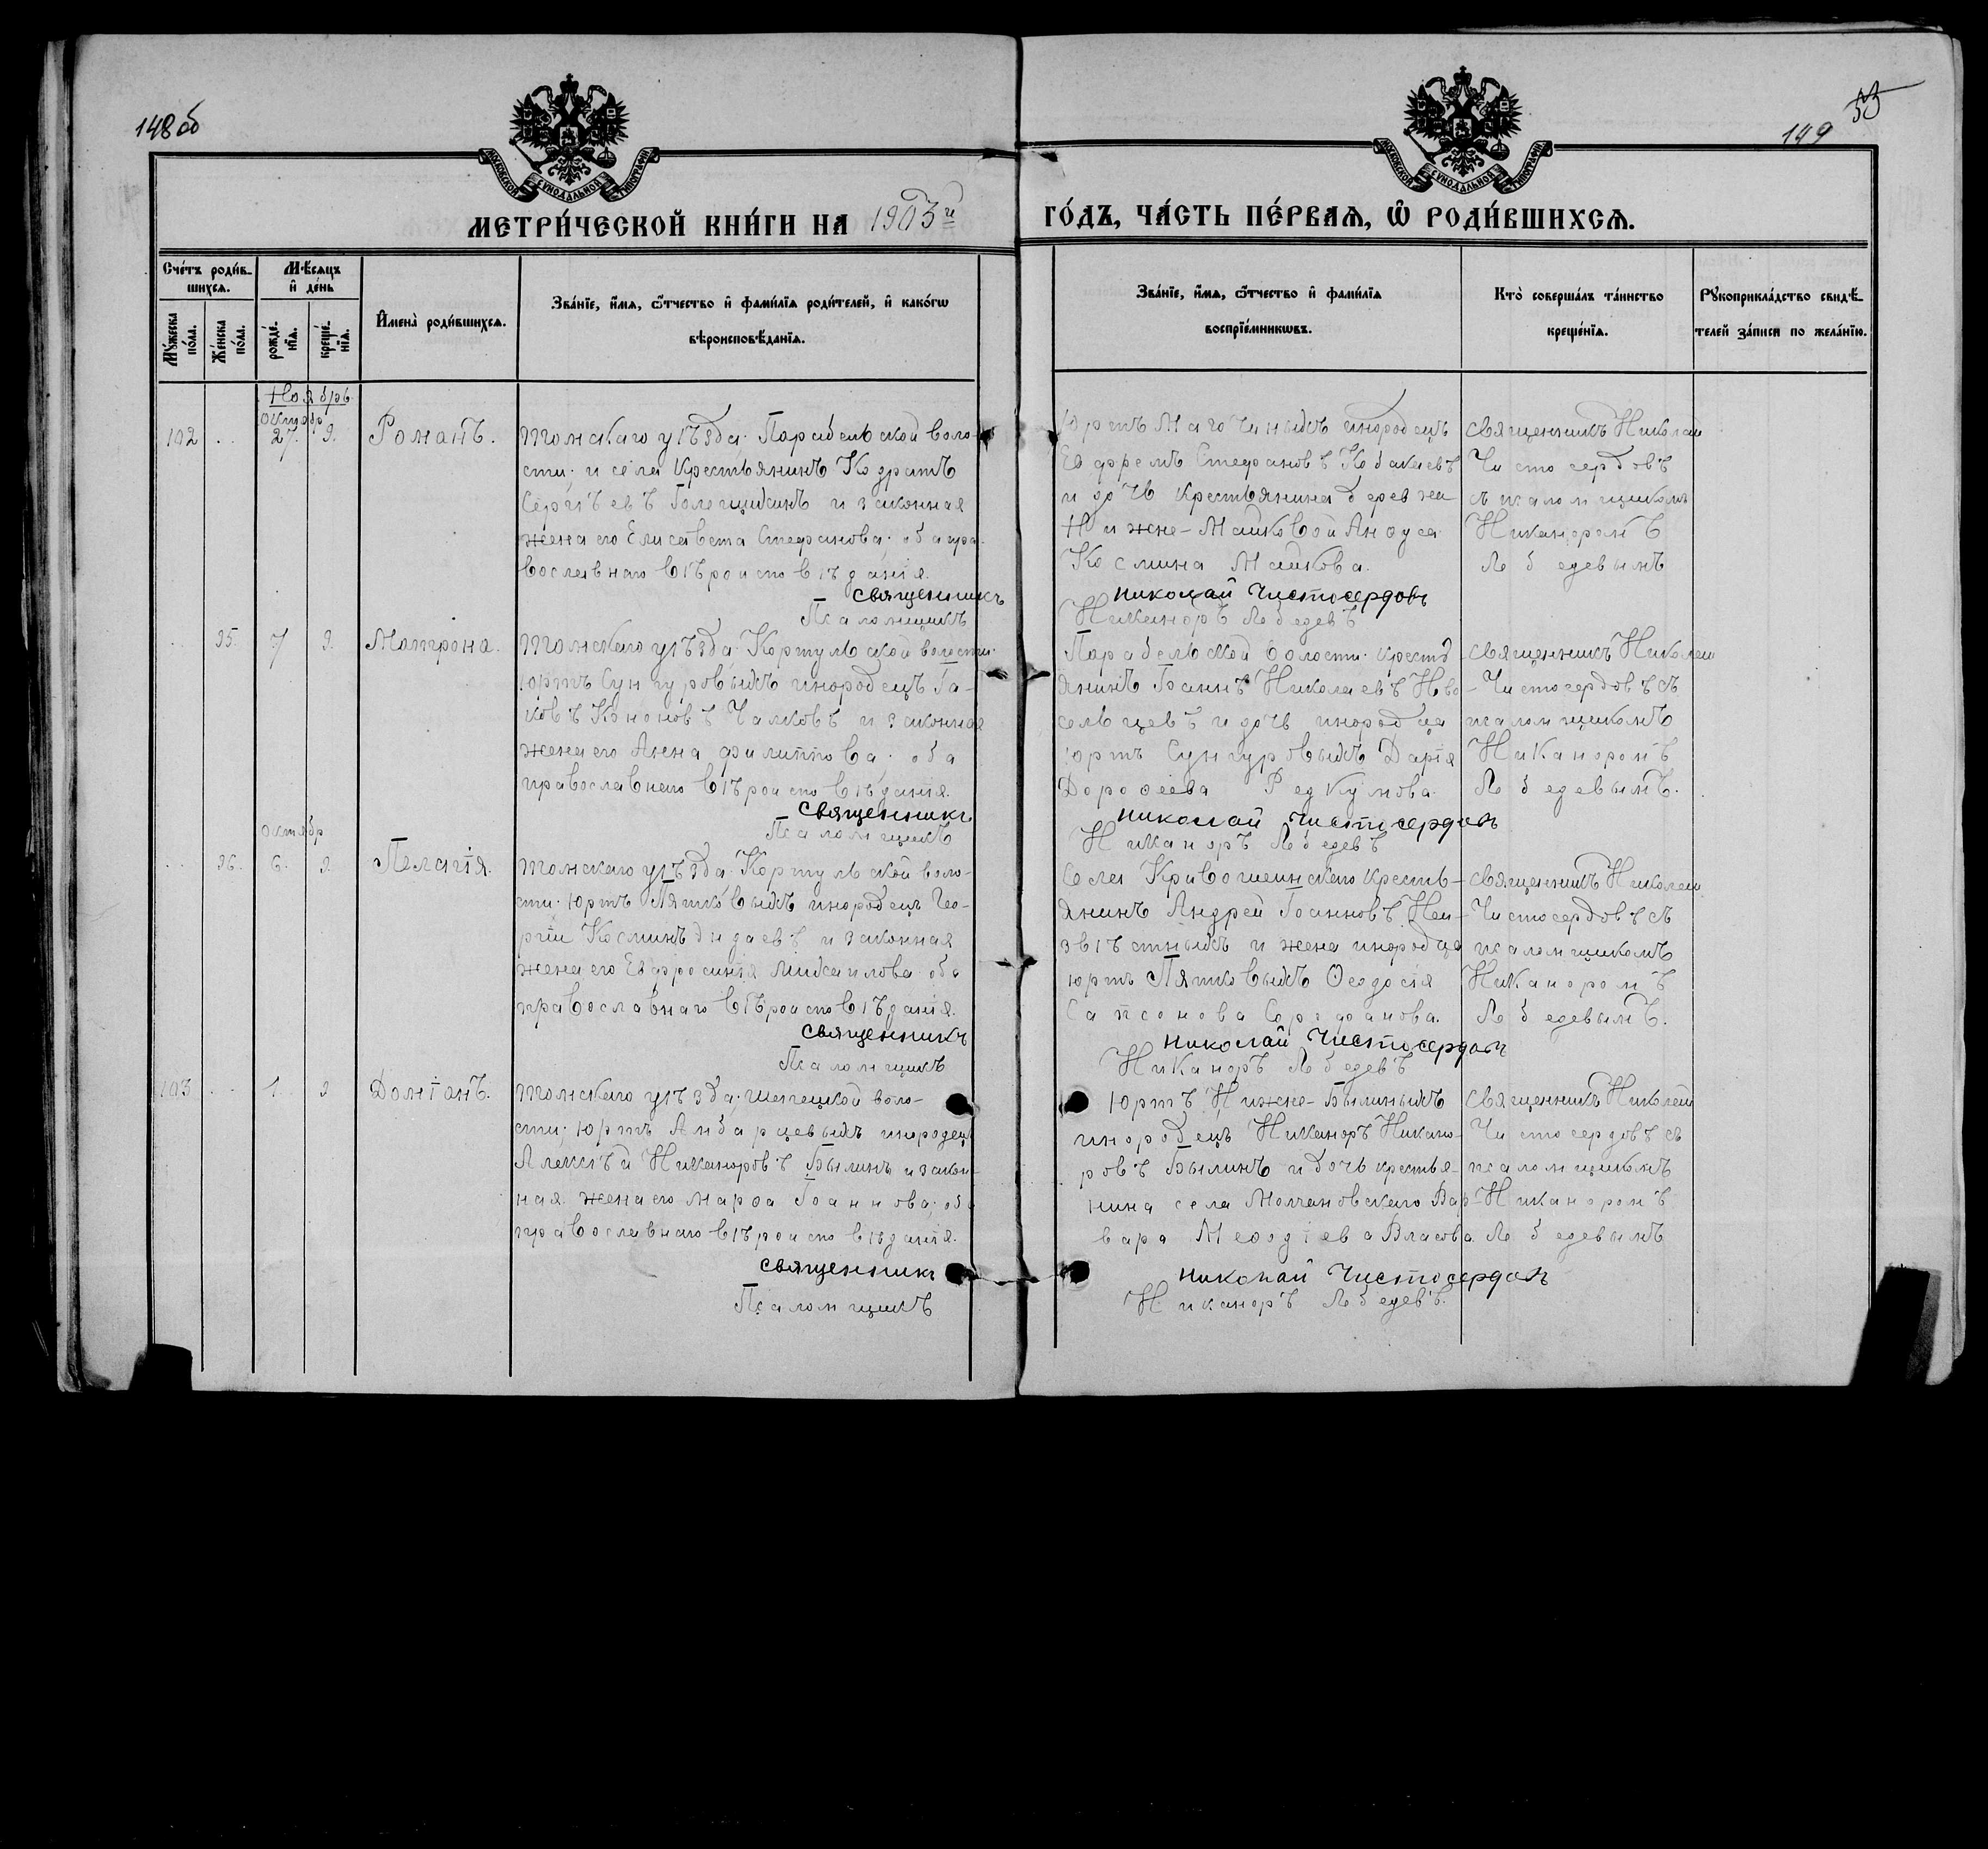 148 об
149
53
МОСКОВСКОЙ СѴНОДАЛЬНОЙ ТИПОГРАФІИ
МОСКОВСКОЙ СѴНОДАЛЬНОЙ ТИПОГРАФІИ
МЕТРИ́ЧЕСКОЙ КНИ́ГИ НА 1903й
ГО́ДЪ, ЧА́СТЬ ПЕ́РВАѦ, Ѽ РОДИ́ВШИХСѦ.
Сче́тъ роди́в-
шихсѧ.
Мꙋ́жеска по́ла.
Же́нска по́ла.
Мѣ́сѧцъ
и҆ де́нь
рожде́нїѧ.
креще́нїѧ.
И҆мена̀ роди́вшихсѧ.
Зва́нїе, и҆́мѧ, ѻ҆́тчество и҆ фамѝлїѧ роди́телей, и҆ како́гѡ
вѣроисповѣ́данїѧ.
Зва́нїе, и҆́мѧ, ѻ҆́тчество и҆ фами́лїѧ
воспрїе́мникѡвъ.
Кто̀ соверша́лъ та́инство
креще́нїѧ.
Рꙋкоприкла́дство свидѣ́-
телей за́писи по жела́нїю.
Ноябрь.
Октябр
102 27. 9. Романъ.
Томскаго уѣзда. Парабельской воло-
сти. и села крестьянинъ Кодратъ
Сергѣевъ Голещихинъ и законная
жена его Елисавета Стефанова. оба пра-
вославнаго вѣроисповѣданія.
Священникъ
Псаломщикъ
Юртъ Магочиныхъ инородецъ
Евфремъ Стефановъ
и дочь крестьянина деревни
Нижне-Машковой Анфуса
Космина Машкова.
Николай Чистосердовъ
Никаноръ Лебедевъ
Священникъ Николай
Чистосердовъ
съ псаломщикомъ
Никаноромъ
Лебедевымъ
35. 7 9. Матрона.
Томскаго уѣзда. Коргульской волости.
юртъ Сунгуровыхъ инородецъ Іа-
ковъ Кононовъ Чалковъ и законная
жена его Анна Филиппова, оба
православнаго вѣроисповѣданія.
Священникъ
Псаломщикъ
Парабельской волости. крестья-
янинъ Іоаннъ Николаевъ Ново-
сельцевъ и дочь инородца
юртъ Сунгуровыхъ Дарія
Дорофеева Редкунова.
Николай Чистосердовъ
Никаноръ Лебедевъ
Священникъ Николай
Чистосердовъ съ
псаломщикомъ
Никаноромъ
Лебедевымъ.
Октябр
36. 6. 9. Пелагія.
Томскаго уѣзда. Коргульской воло-
сти. Юртъ Пятковыхъ инородецъ Гео-
ргій Косминъ и законная
жена его Евфросинія Михаилова оба
православнаго вѣроисповѣданія.
Священникъ
Псаломщикъ
Села Кривошеинскаго кресть-
янинъ Андрей Іоанновъ Неи-
звѣстныхъ и жена инородца
юртъ Пятковыхъ Ѳеодосія
Сапсонова
Николай Чистосердовъ
Никаноръ Лебедевъ
Священникъ Николай
Чистосердовъ съ
псаломщикомъ
Никаноромъ
Лебедевымъ.
103 1. 9 Доміанъ.
Томскаго уѣзда. Шепецкой воло-
сти; Юртъ Амбарцевыхъ инородецъ
Алексѣй Никаноровъ Былинъ и закон-
ная жена его Марфа Іоаннова, оба
православнаго вѣроисповѣданія.
Священникъ
Псаломщикъ
Юртъ Нижне-Былиныхъ
инородецъ Никаноръ Никано-
ровъ Былинъ и дочь крестья-
нина села Молчановскаго Вар-
вара Меѳодіева Власова.
Николай Чистосердовъ
Никаноръ Лебедевъ.
Священникъ Николай
Чистосердовъ съ
псаломщикомъ
Никаноромъ
Лебедевымъ